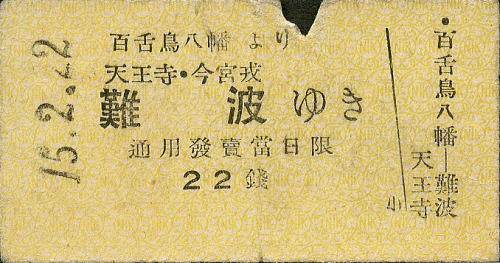 15.2.22
百舌鳥八幡より
天王寺・今宮戎
難波ゆき
通用發賣當日限
22錢
・百舌鳥八幡―難波
天王寺
小